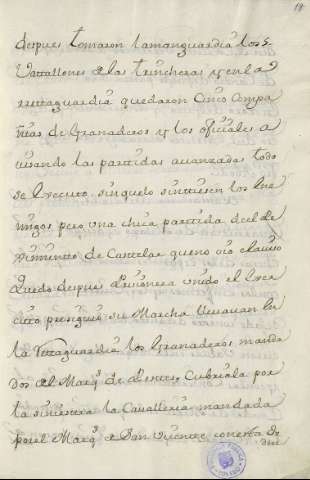 19
despues tomaron la manguardia los
Vattallones de las trincheras y en la
rettaguardia quedaron Cinco Compa
ñias de Granaderos y los oficiales a
uisando las partidas auanzadas todo
se executo sinquelo sinttiesen los Ene
migos pero una chica partida del Re
ximiento de que no oio el auiso
quedo despues Prisionera unido el Exer
cito prosiguio su Marcha lleuauan En
la Rettaguardia los Granaderos manda
dos el Marq.s de Cubriala por
la siniestra la Cavalleria mandada
por el Marq.s e San Vicente con esta Or
den